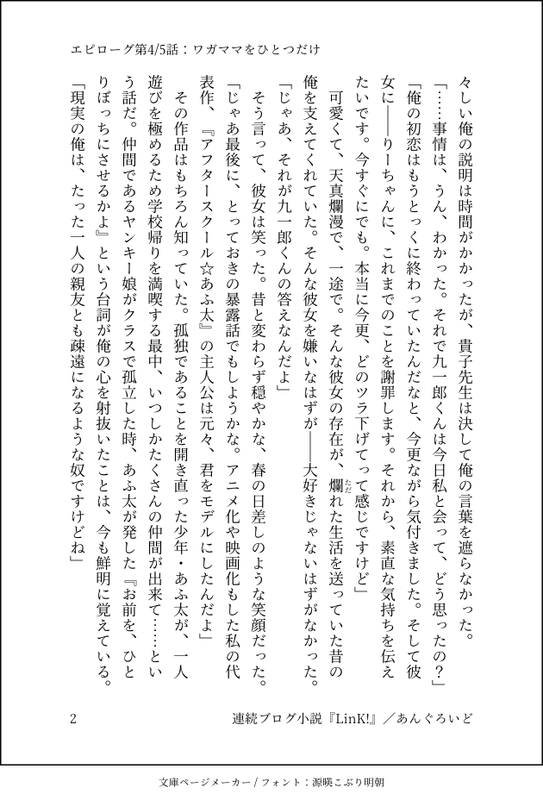 エピローグ第4/5話：ワガママをひとつだけ
々しい俺の説明は時間がかかったが、貴子先生は決して俺の言葉を遮らなかった。
「……事情は、うん、わかった。それで九一郎くんは今日私と会って、どう思ったの？」
「俺の初恋はもうとっくに終わっていたんだなと、今更ながら気付きました。そして彼
女に――りーちゃんに、これまでのことを謝罪します。それから、素直な気持ちを伝え
たいです。今すぐにでも。本当に今更、どのツラ下げてって感じですけど」
　可愛くて、天真爛漫で、一途で。そんな彼女の存在が、爛れた生活を送っていた昔の
ただ
俺を支えてくれていた。そんな彼女を嫌いなはずが――大好きじゃないはずがなかった。
「じゃあ、それが九一郎くんの答えなんだよ」
　そう言って、彼女は笑った。昔と変わらず穏やかな、春の日差しのような笑顔だった。
「じゃあ最後に、とっておきの暴露話でもしようかな。アニメ化や映画化もした私の代
表作、『アフタースクール☆あふ太』の主人公は元々、君をモデルにしたんだよ」
　その作品はもちろん知っていた。孤独であることを開き直った少年・あふ太が、一人
遊びを極めるため学校帰りを満喫する最中、いつしかたくさんの仲間が出来て……とい
う話だ。仲間であるヤンキー娘がクラスで孤立した時、あふ太が発した『お前を、ひと
りぼっちにさせるかよ』という台詞が俺の心を射抜いたことは、今も鮮明に覚えている。
「現実の俺は、たった一人の親友とも疎遠になるような奴ですけどね」
2
連続ブログ小説『LinK!』／あんぐろいど
文庫ページメーカー / フォント：源暎こぶり明朝